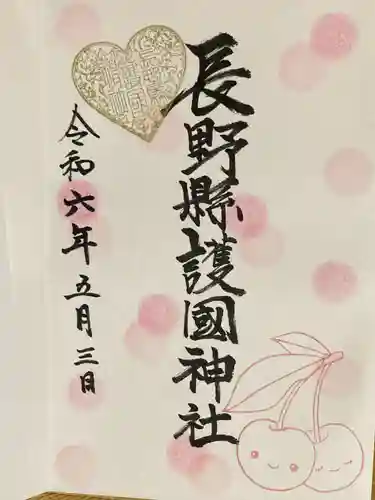 長野縣護國神社
令和六年五月三日